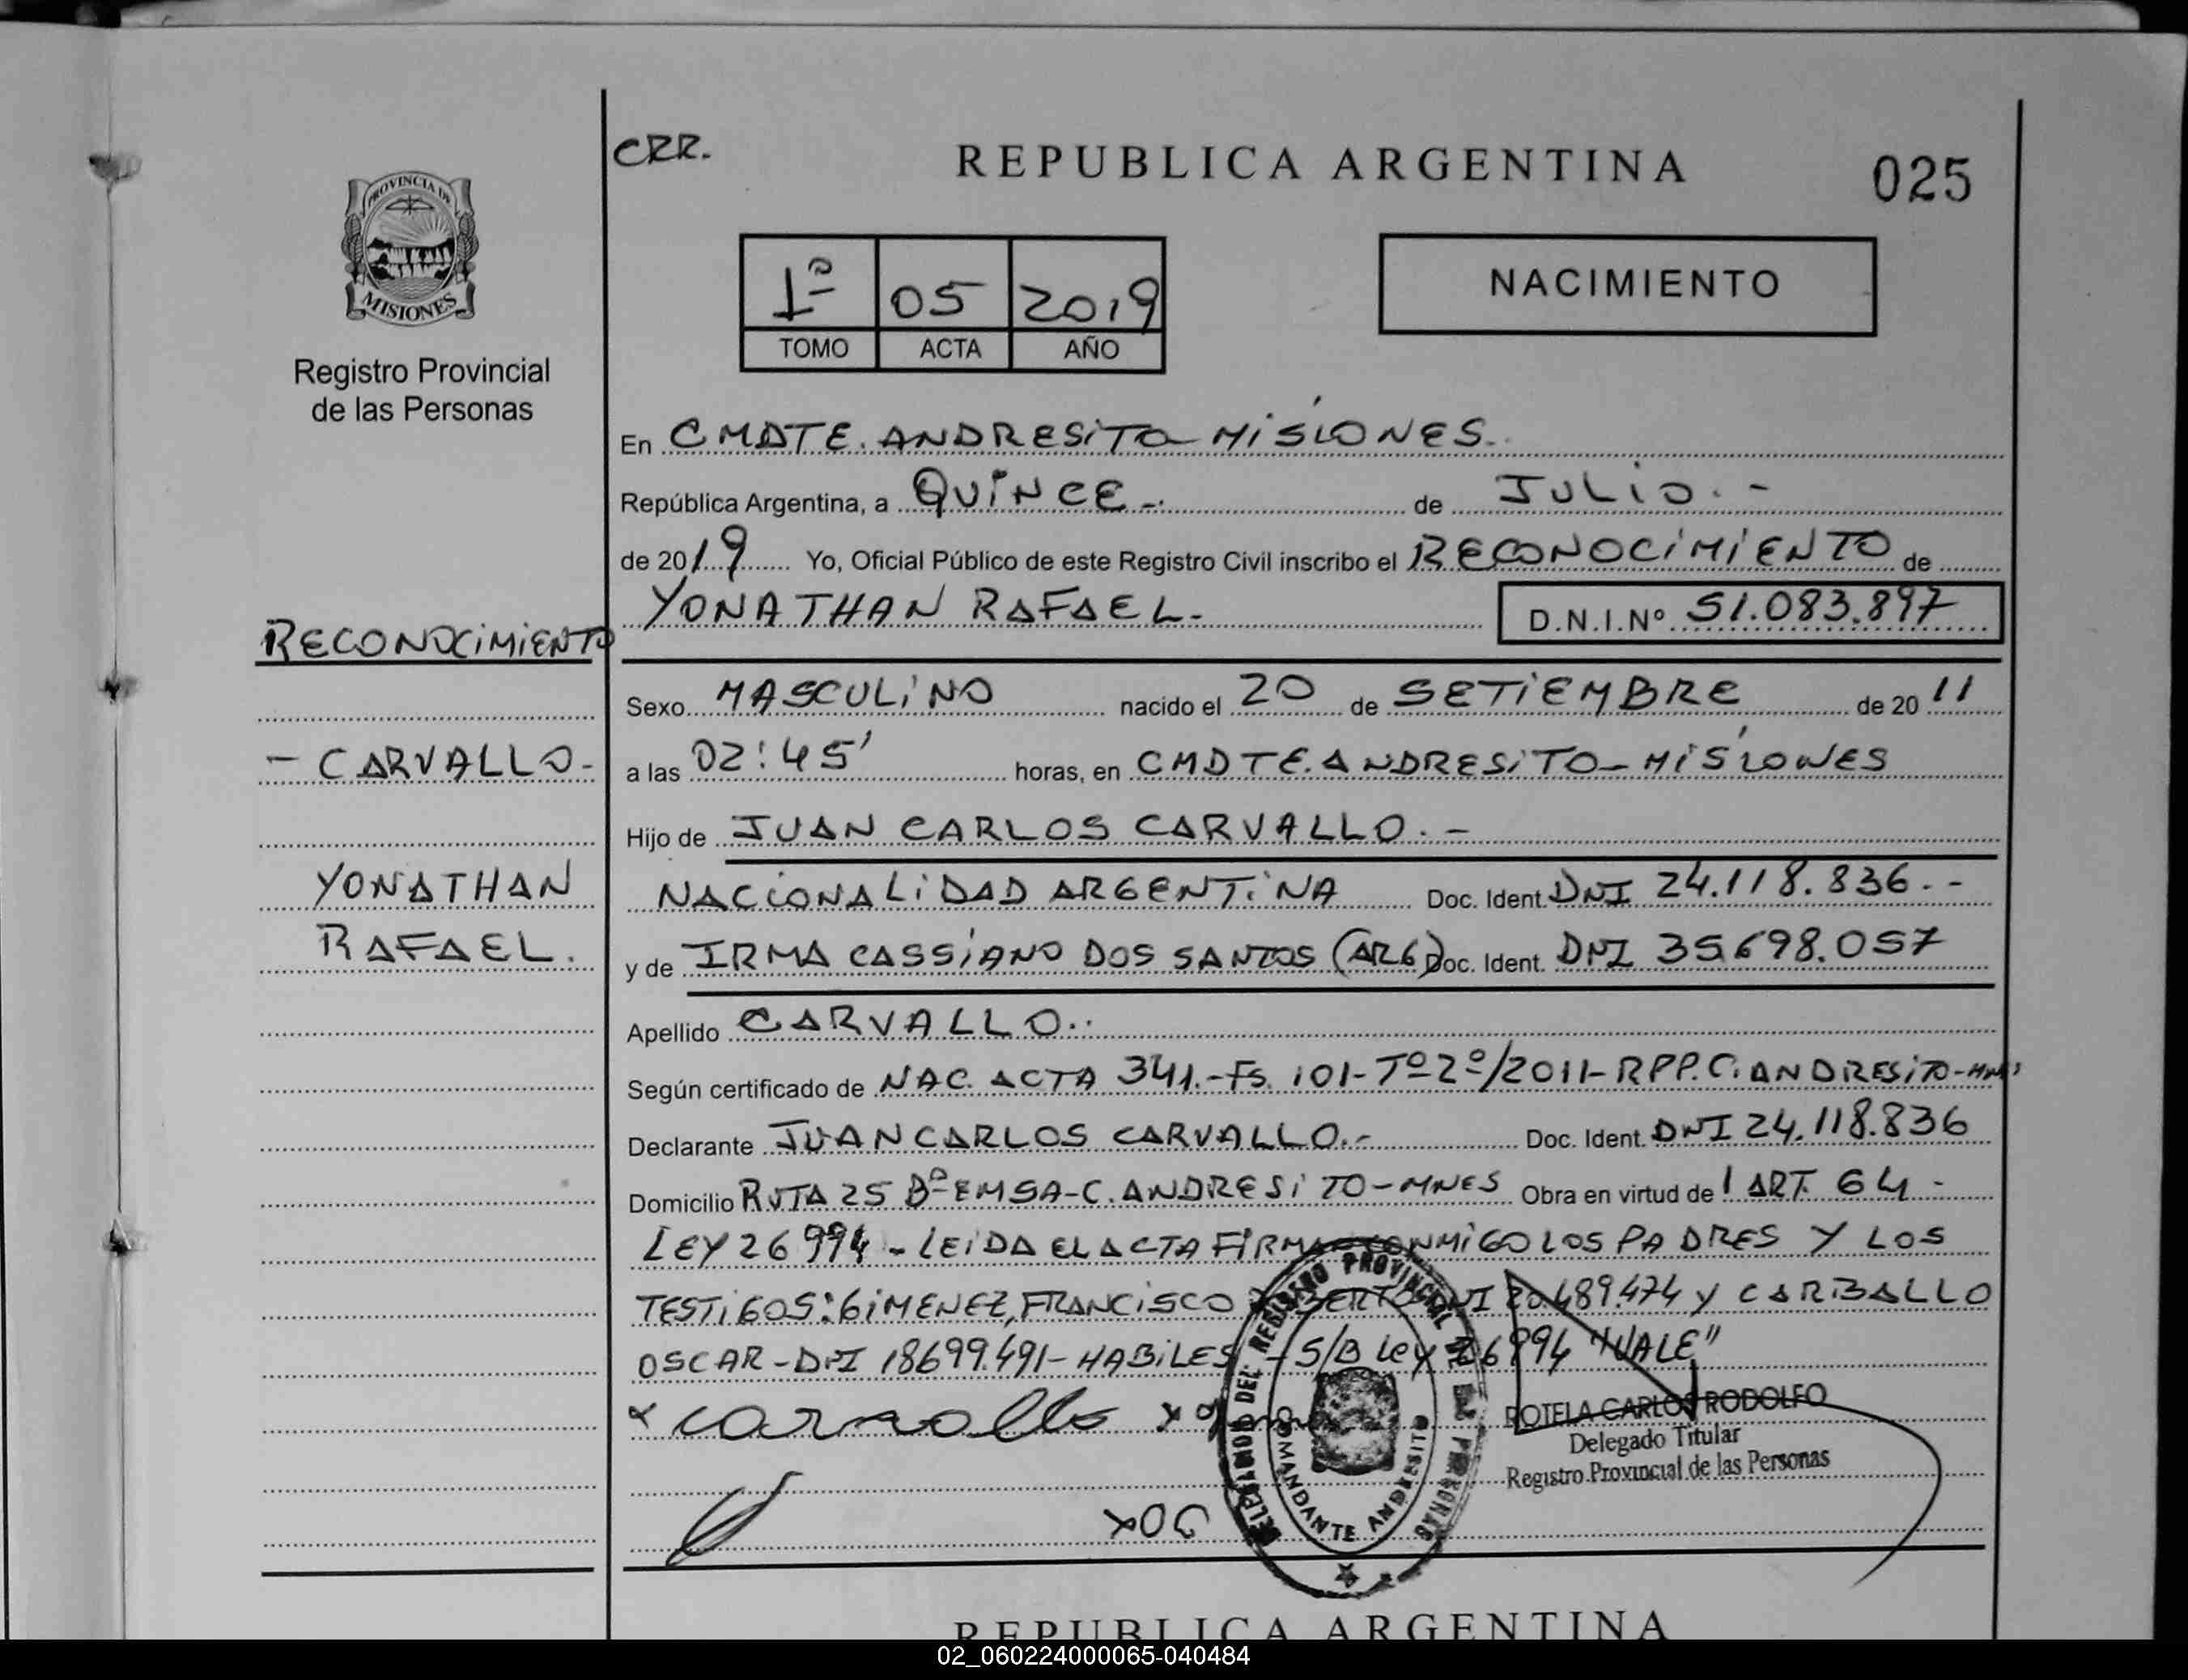 CRR.
REPUBLICA ARGENTINA
025
PROVINCIA DE
MISIONES
Registro Provincial
de las Personas
1º 05 2019
TOMO ACTA AÑO
NACIMIENTO
En CMDTE. ANDRESITO - MISIONES.
República Argentina, a QUINCE - de JULIO. -
de 2019 Yo, Oficial Público de este Registro Civil inscribo el RECONOCIMIENTO de
YONATHAN RAFAEL. - D.N.I.Nº 51.083.897
RECONOCIMIENTO
- CARVALLO -
YONATHAN
RAFAEL.
Sexo MASCULINO nacido el 20 de SETIEMBRE de 2011
a las 02:45' horas, en CMDTE. ANDRESITO - MISIONES
Hijo de JUAN CARLOS CARVALLO. -
NACIONALIDAD ARGENTINA Doc. Ident. DNI 24.118.836. -
y de IRMA CASSIANO DOS SANTOS (ARG) Doc. Ident. DNI 35698.057
Apellido CARVALLO.:
Según certificado de NAC. ACTA 341.-Fs. 101-Tº2º/2011-RPP.C.ANDRESITO-
Declarante JUAN CARLOS CARVALLO. - Doc. Ident. DNI 24.118.836
Domicilio RUTA 25 Bº EMSA-C.ANDRESITO-MNES Obra en virtud de ART. 64 -
LEY 26994 - LEIDA EL ACTA FIRMAN CONMIGO LOS PADRES Y LOS
TESTIGOS: GIMENEZ, FRANCISCO 489.474 y CARBALLO
OSCAR - DNI 18699.491 - HABILES - S/B Ley 26994 "VALE"
x carvallo x
ROTELA CARLOS RODOLFO
Delegado Titular
Registro Provincial de las Personas
xOC
DELEGACION DEL REGISTRO PROVINCIAL DE LAS PERSONAS
COMANDANTE ANDRESITO
REPUBLICA ARGENTINA
02_060224000065-040484